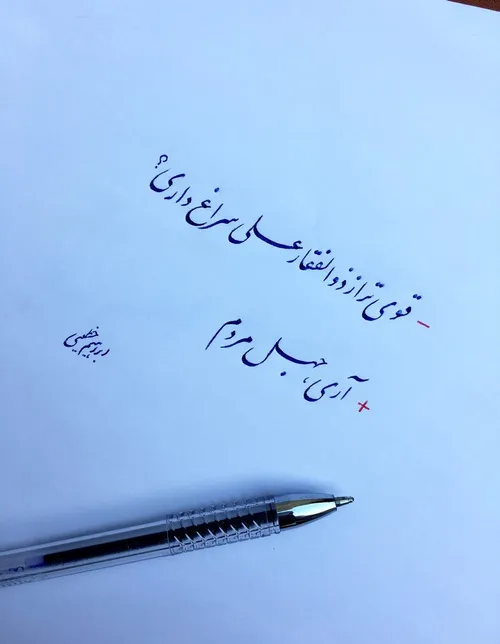 - قوی تر از ذوالفقار علی سراغ داری؟
+ آری، جهل مردم